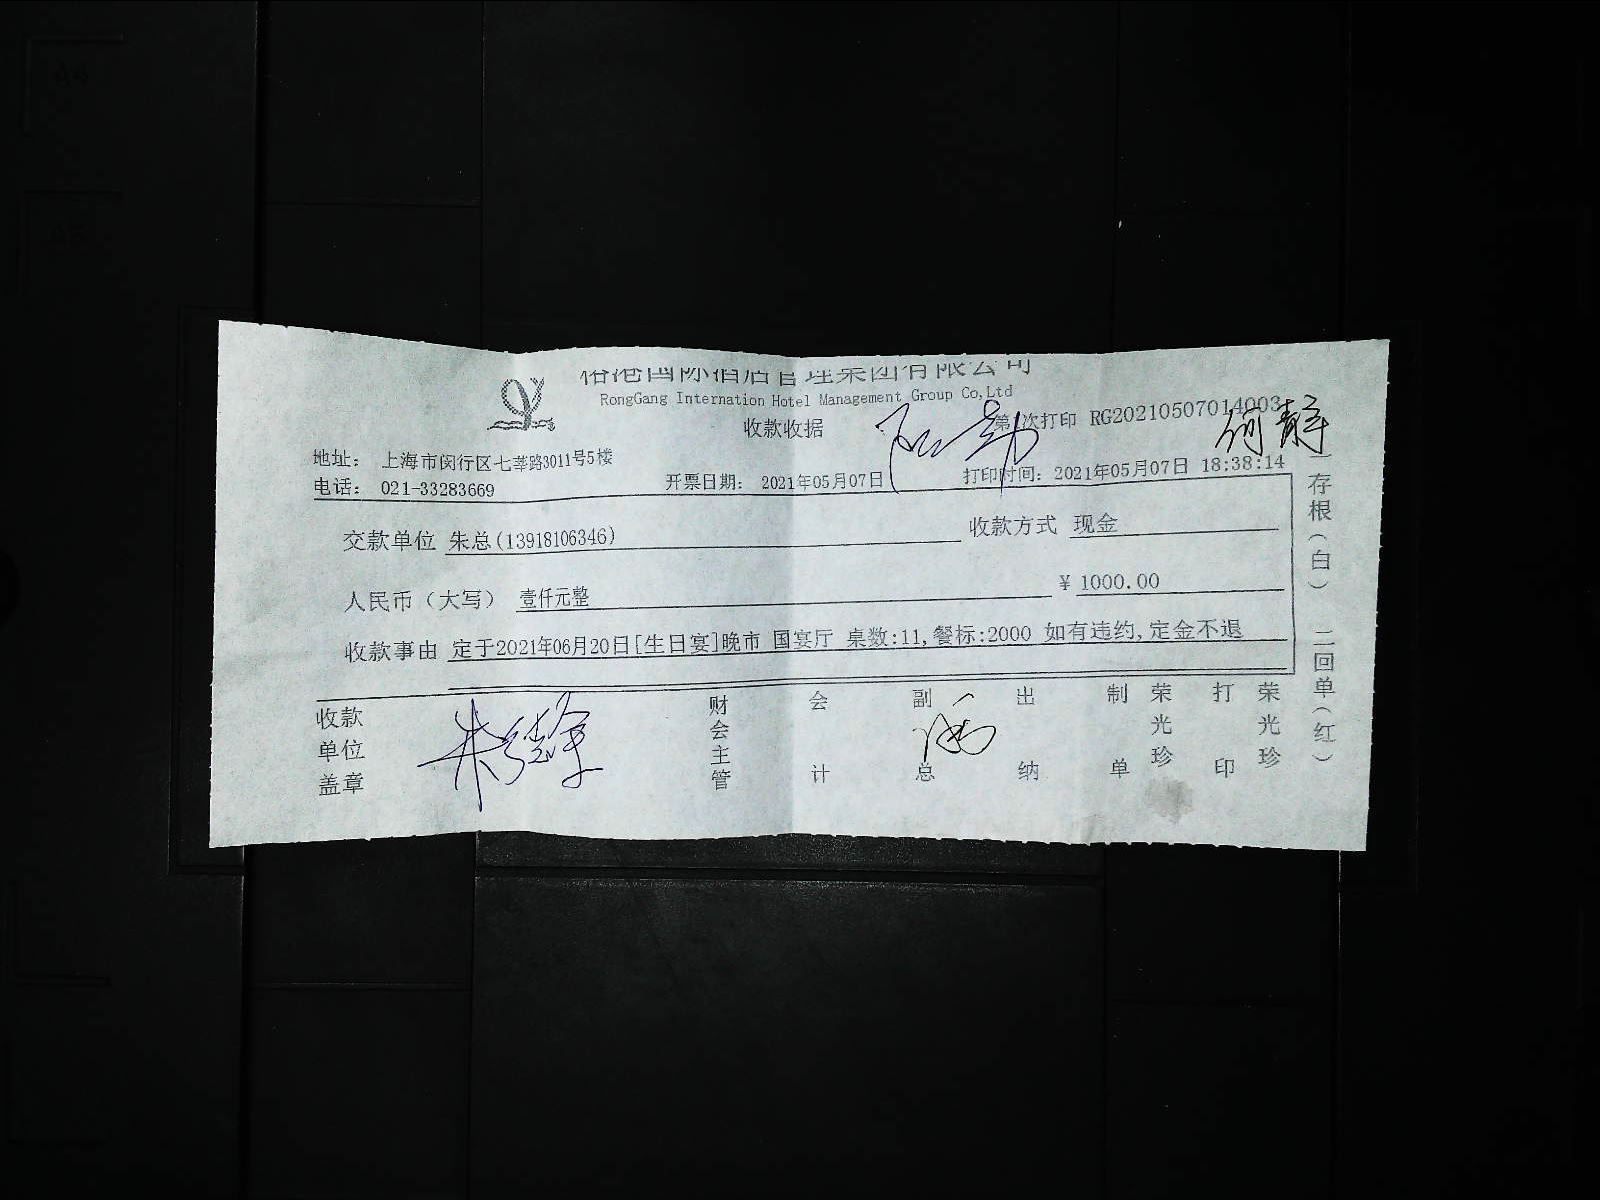 国际酒店管理集团有限公司
RongGang International Hotel Management Group Co,Ltd
收款收据
第1次打印 RG20210507014003
何静
地址： 上海市闵行区七莘路3011号5楼
电话： 021-33283669
开票日期： 2021年05月07日
打印时间：2021年05月07日 18:38:14
交款单位 朱总(13918106346)
收款方式 现金
人民币（大写） 壹仟元整
￥ 1000.00
收款事由 定于2021年06月20日[生日宴]晚市 国宴厅 桌数:11,餐标:2000 如有违约,定金不退
收款单位盖章
财会主管
会计
副总
出纳
制单
荣光珍
打印
荣光珍
一存根（白） 二回单（红）